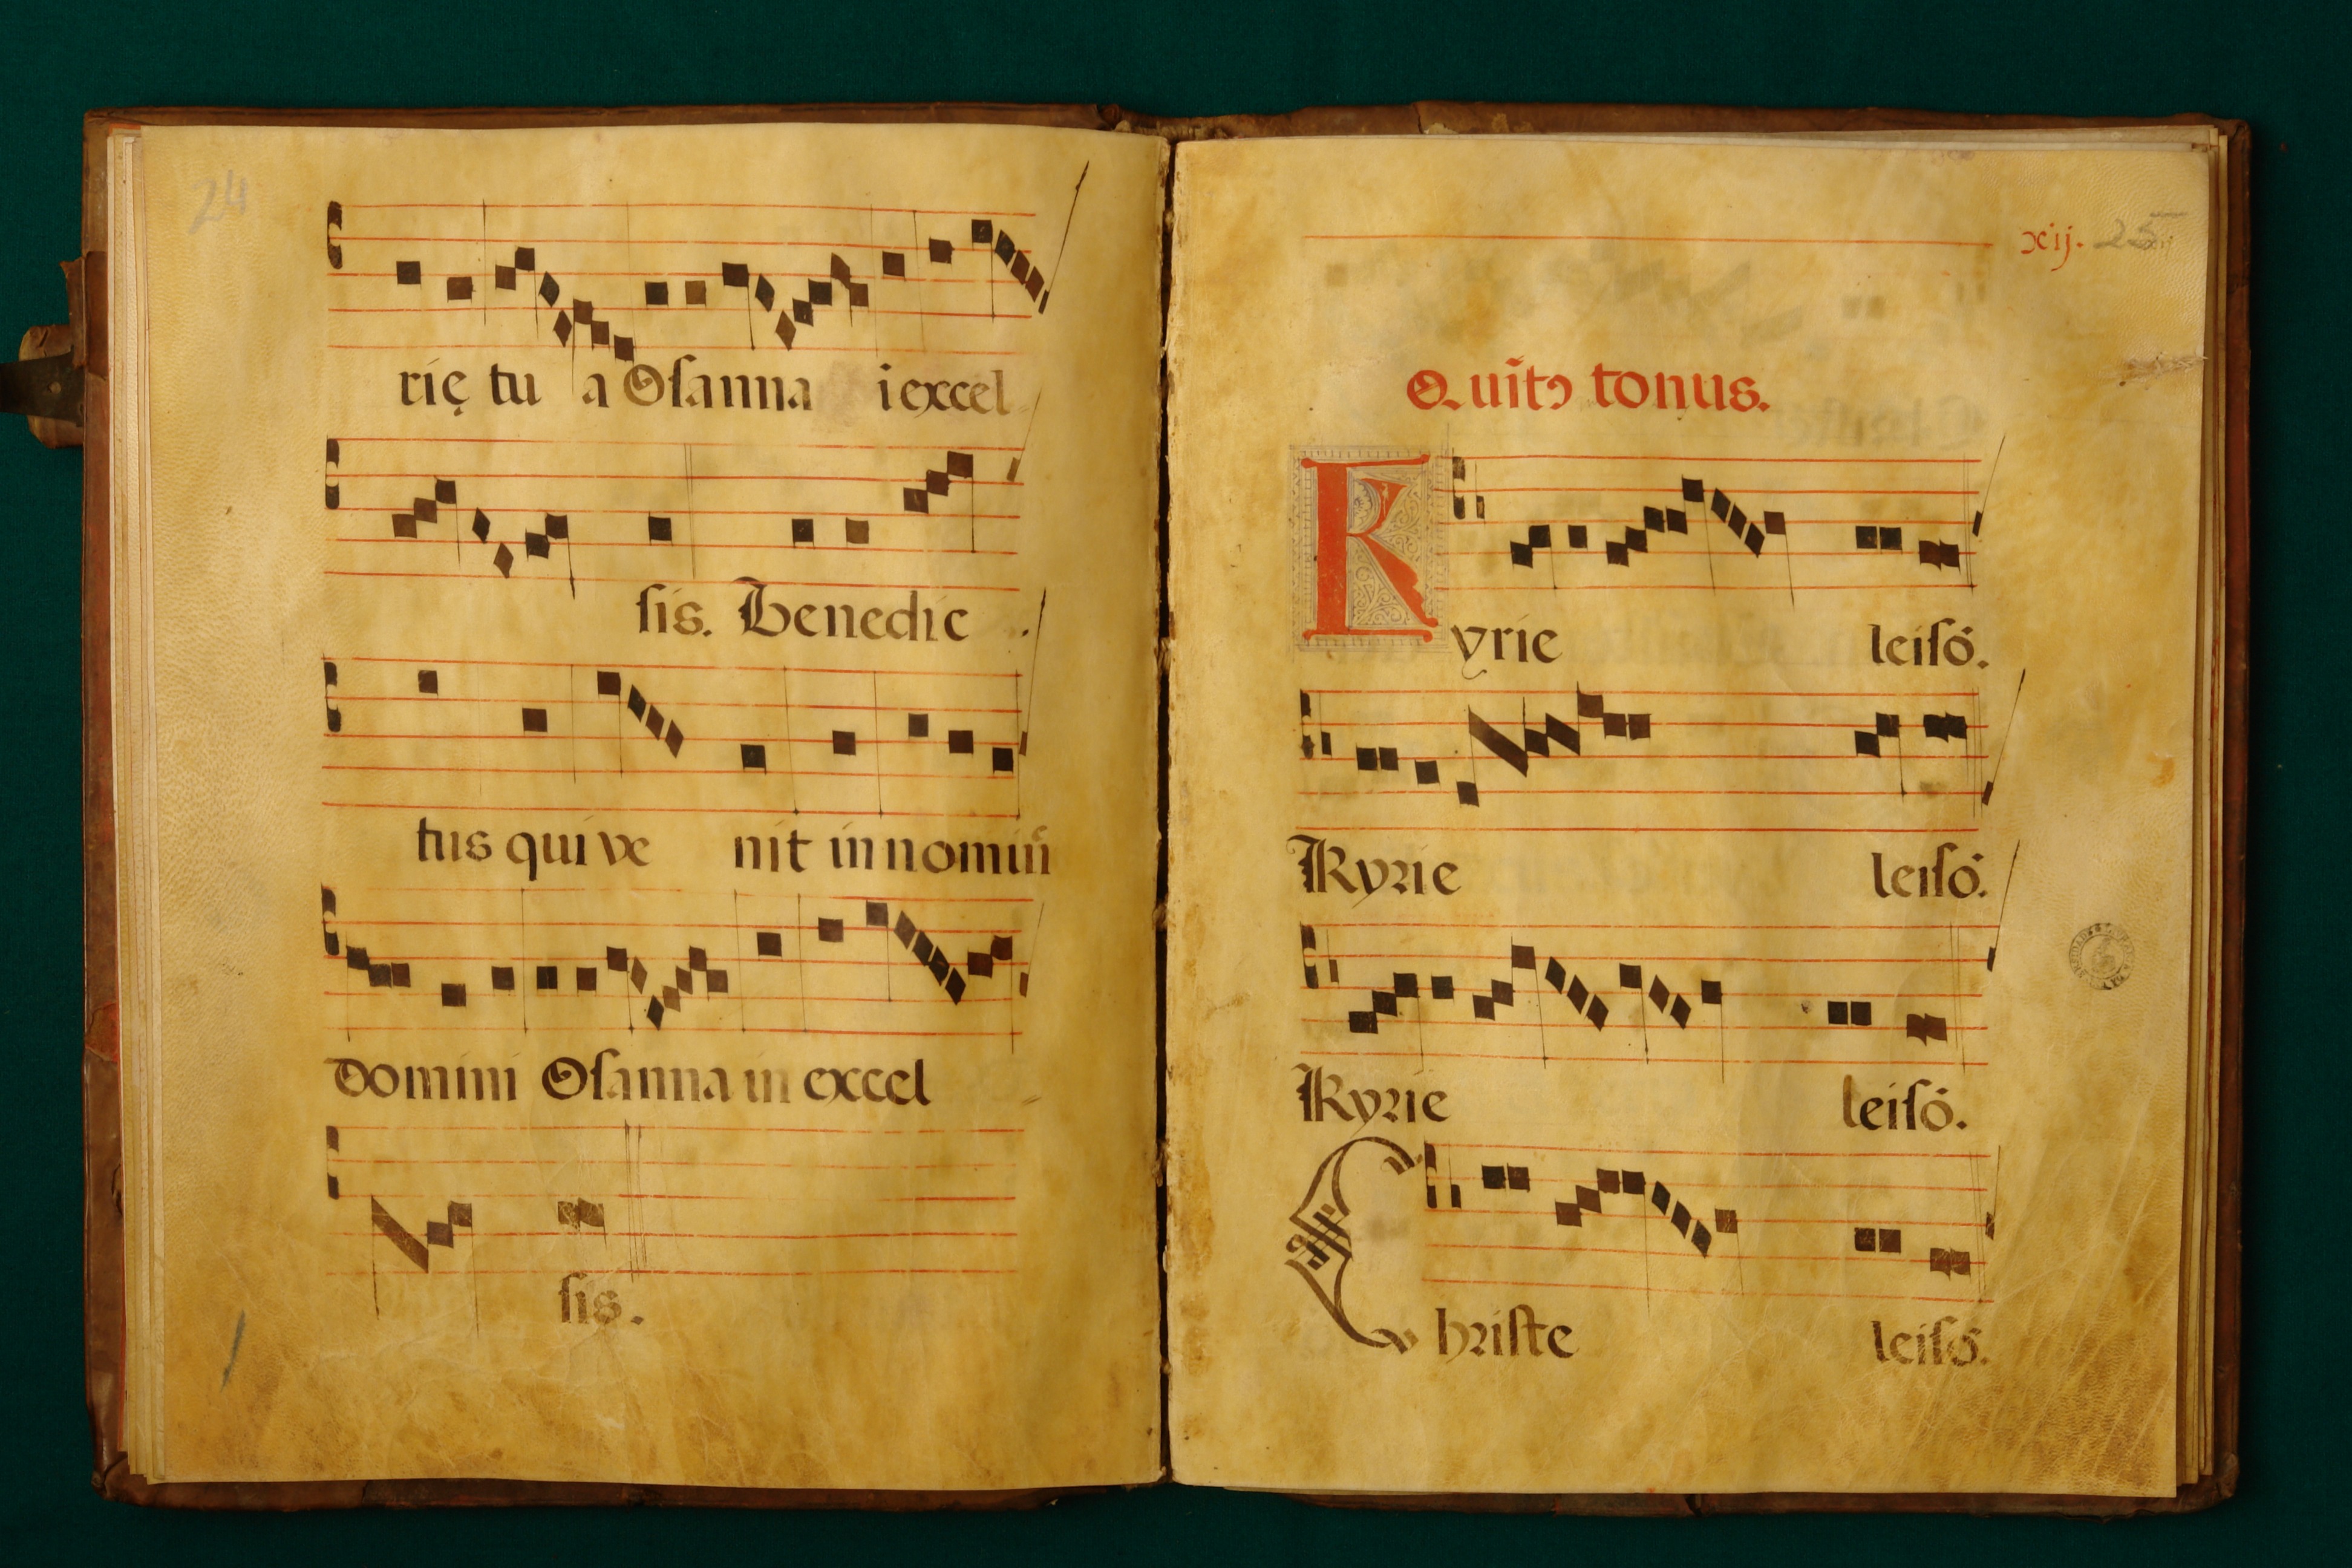 24
rię tu a Osanna i excel
sis. Benedic
tus qui ve nit in nomin̄
domini Osanna in excel
sis.
xij. 25
Quĩtꝰ tonus.
Kyrie leisō.
Kyrie leisō.
Kyrie leisō.
Christe leisō.